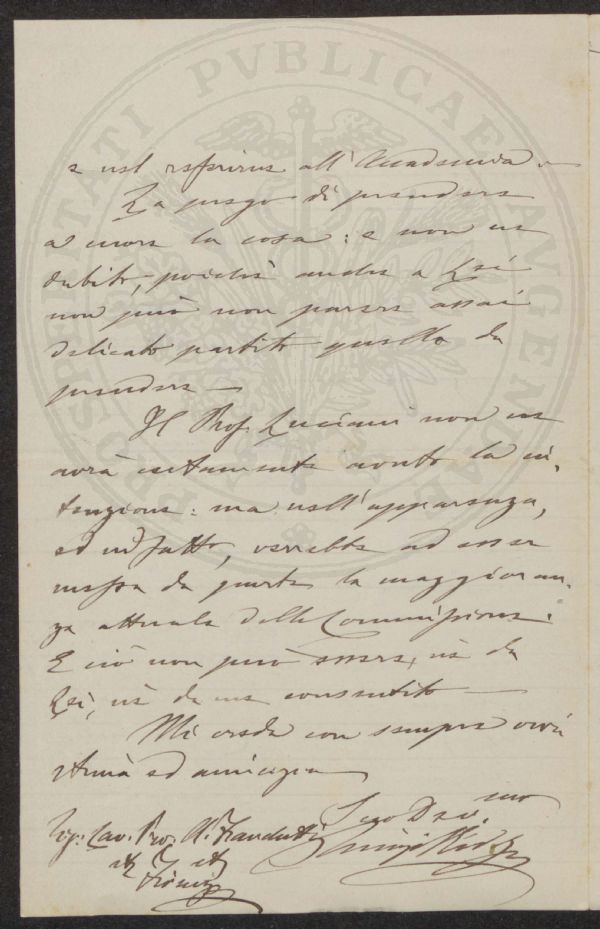 PROSPERITATI PVBLICAE AVGENDAE
e nel riferirne all'Accademia. –
La prego di prendere
a cuore la cosa: e non ne
dubito, poichè anche a Lei
non può non parere assai
delicato partito quello da
prendere –
Il Prof. Luciani non ne
avrà certamente avuto la in-
tenzione: ma nell'apparenza,
ed in fatto, verrebbe ad esser
messa da parte la maggioran-
za attuale della Commissione.
E ciò non può essere, nè da
Lei, nè da me consentito –
Mi creda con sempre viva
stima ed amicizia
Suo Dev.mo
Luigi
Sig. Cav. Pro. A.
Firenze